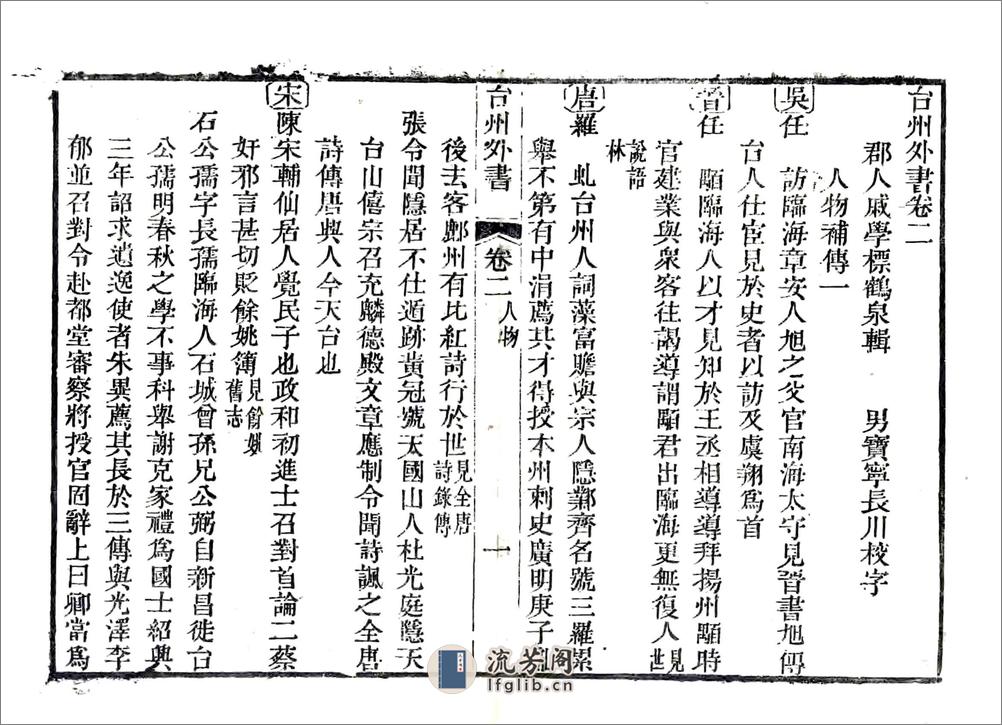 台州外書卷二
郡人戚學標鶴泉輯 男寶寧長川校字
人物補傳一
吳任 訪臨海章安人旭之父官南海太守見晉書旭傳
台人仕宦見於史者以訪及虞翔爲首
晉任 顒臨海人以才見知於王丞相導導拜揚州顒時
官建業與衆客往謁導謂顒君出臨海更無復人見世
說語
林
唐羅 虬台州人詞藻富贍與宗人隱鄴齊名號三羅累
舉不第有中涓薦其才得授本州刺史廣明庚子
台州外書 卷二 人物 一
後去客鄜州有比紅詩行於世見全唐
詩錄傳
張令聞隱居不仕遁跡黄冠號天國山人杜光庭隱天
台山僖宗召充麟德殿文章應制令聞詩諷之全唐
詩傳唐興人今天台也
宋陳宋輔仙居人覺民子也政和初進士召對首論二蔡
奸邪言甚切貶餘姚簿見餘姚
舊志
石公孺字長孺臨海人石城曾孫兄公弼自新昌徙台
公孺明春秋之學不事科舉謝克家禮爲國士紹興
三年詔求遺逸使者朱異薦其長於三傳與光澤李
郁並召對令赴都堂審察將授官固辭上曰卿當爲
流芳阁
lfglib.cn